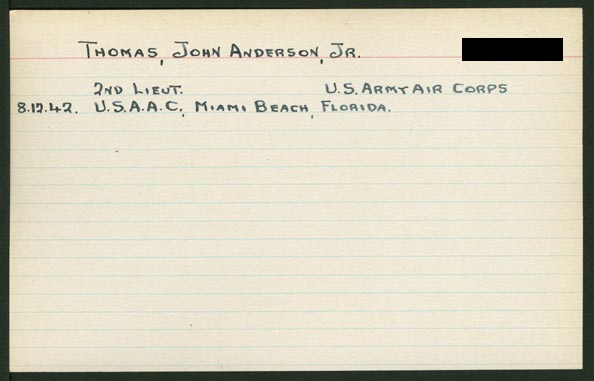 THOMAS, JOHN ANDERSON, JR.
2ND LIEUT. U.S. ARMY AIR CORPS
8.12.42. U.S.A.A.C., MIAMI BEACH, FLORIDA.